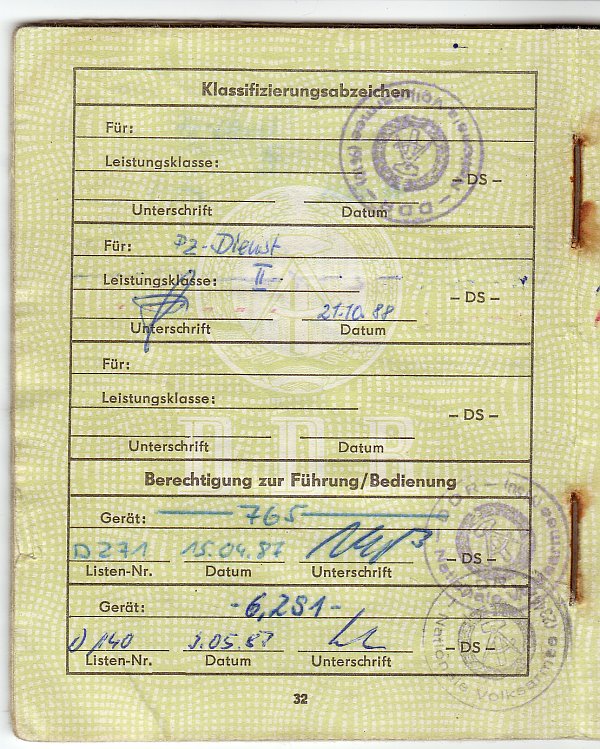 Klassifizierungsabzeichen
Für:
Leistungsklasse:
– DS –
Unterschrift Datum
Für: Pz-Dienst
Leistungsklasse: II
– DS –
21.10.88
Unterschrift Datum
Für:
Leistungsklasse:
– DS –
Unterschrift Datum
DDR
Berechtigung zur Führung/Bedienung
Gerät: 765
D271 15.04.87 – DS –
Listen-Nr. Datum Unterschrift
Gerät: -6,2S1-
D/140 .05.87 – DS –
Listen-Nr. Datum Unterschrift
Nationale Volksarmee
32